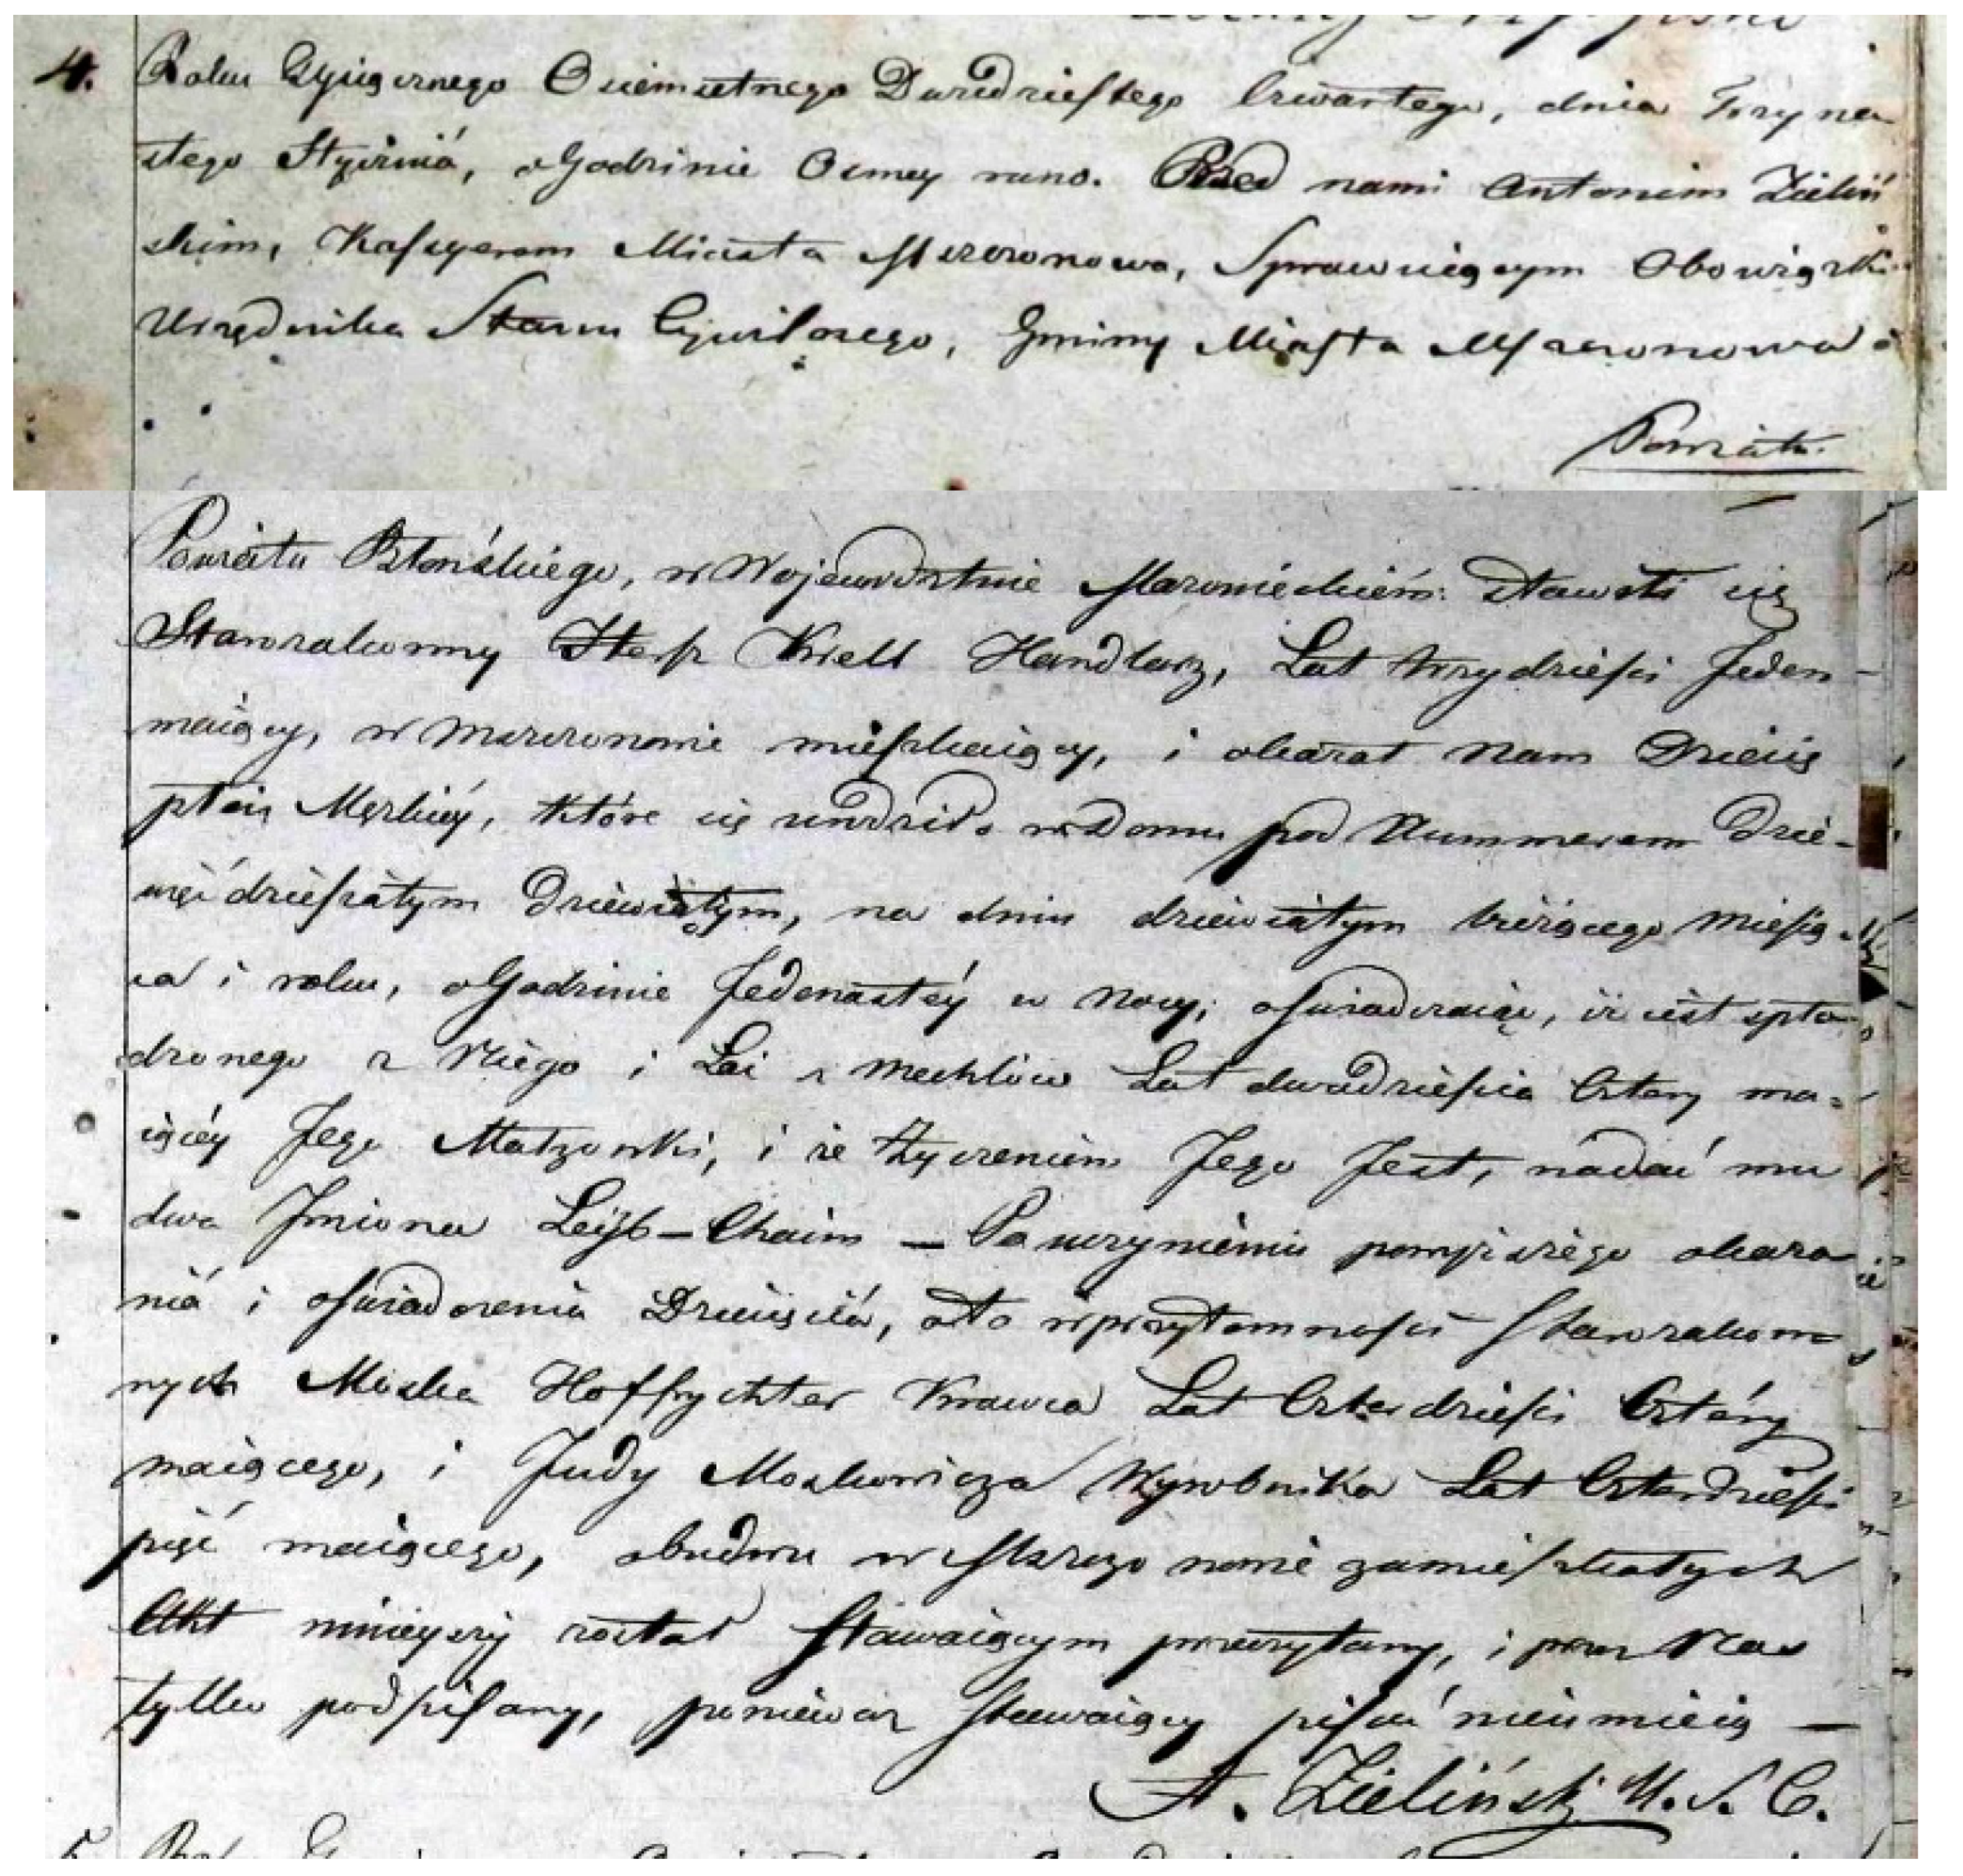 4. Roku Tysiącznego Ośiemsetnego Dwudziestego Czwartego, dnia Trzyna
stego Stycznia, o Godzinie Osmey rano. Przed nami Antonim Zieliń
skim, Kassyerem Miasta Mszczonowa, Sprawuiącym Obowiązki
Urzędnika Stanu Cywilnego, Gminy Miasta Mszczonowa
Powiatu
Powiatu Błońskiego, w Wojewodztwie Mazowieckiém. Stawił się
Starozakonny Krell Handlarz, Lat trzydzieści Jeden
maiący, w Mszczonowie mieszkaiący, i okazał Nam Dziecię
płci Męzkiéy, które się urodziło w Domu pod Nummerem Dzie-
więćdziesiątym Dziewiątym, na dniu dziewiątym bieżącego Miesią-
ca i roku, o Godzinie Jedenastéy w Nocy; oświadczaiąc, iż iest spło
dzonego z Niego i Łai z Mechlów Lat dwadzieścia Cztery ma=
iącéy Jego Małzonki, i że życzeniem Jego Jest, nadać mu
dwa Jmiona Leyb – Chaim – Po uczynieniu powyższego okaza
nia i oświadczenia Dziecięcia, oto w przytomności Starozakon
nych Moska Hoffrychter Krawca Lat Czterdzieści Cztéry
maiącego, i Judy Moskowicza Wyrobnika Lat Czterdzieści
pięć maiącego, obudwu w Mszczonowie zamieszkałych
Akt ninieyszy został Stawaiącym przeczytany, i przez Nas
tylko podpisany, ponieważ Stawaiący pisać nieumieią —
A. Zieliński U. S. C.
5.